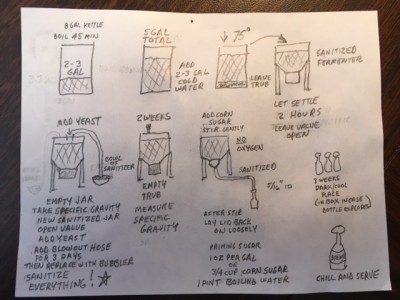 8 GAL KETTLE
BOIL 45 MIN
2-3
GAL
5 GAL
TOTAL
ADD
2-3 GAL
COLD
WATER
75°
LEAVE
TRUB
SANITIZED
FERMENTER
LET SETTLE
2 HOURS
LEAVE VALUE
OPEN
ADD YEAST
BOWL OF
SANITIZER
EMPTY JAR
TAKE SPECIFIC GRAVITY
NOW SANITIZED JAR
OPEN VALUE
ADD YEAST
ADD BLOWOUT HOSE
FOR 3 DAYS
THEN REPLACE WITH BUBBLER
SANITIZE
EVERYTHING!
2 WEEKS
EMPTY
TRUB
MEASURE
SPECIFIC
GRAVITY
ADD CORN
SUGAR
STIR GENTLY
NO
OXYGEN
SANITIZED
5/16" ID
AFTER STIR
LAY LID BACK
ON LOOSELY
PRIMING SUGAR
1 OZ PER GAL
OR
3/4 CUP CORN SUGAR
1 PINT BOILING WATER
3 WEEKS
DARK/COOL
PLACE
(IN BOX IN CASE
BOTTLE EXPLODES)
CHILL AND SERVE